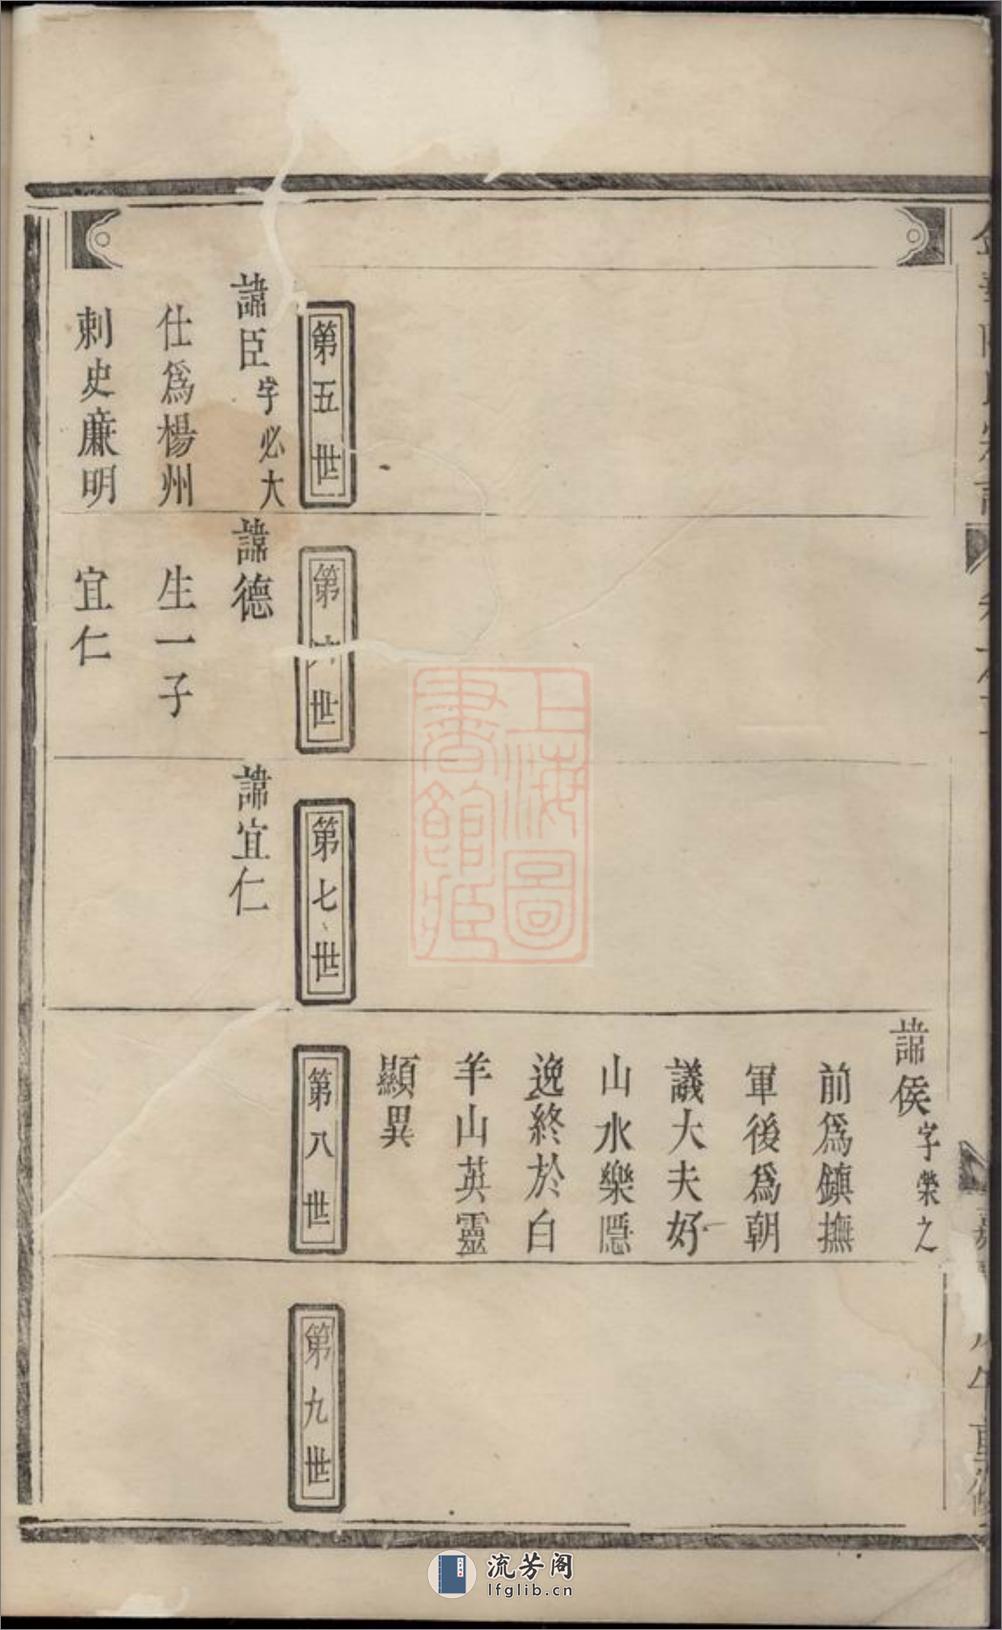 諱侯字榮之
前爲鎮撫
軍後爲朝
議大夫好
山水樂隱
逸終於白
羊山英靈
顯異
第五世
諱臣字必大
仕爲楊州
刺史廉明
第六世
諱德
生一子
宜仁
第七世
諱宜仁
第八世
第九世
上海圖
書館藏
流芳阁
lfglib.cn